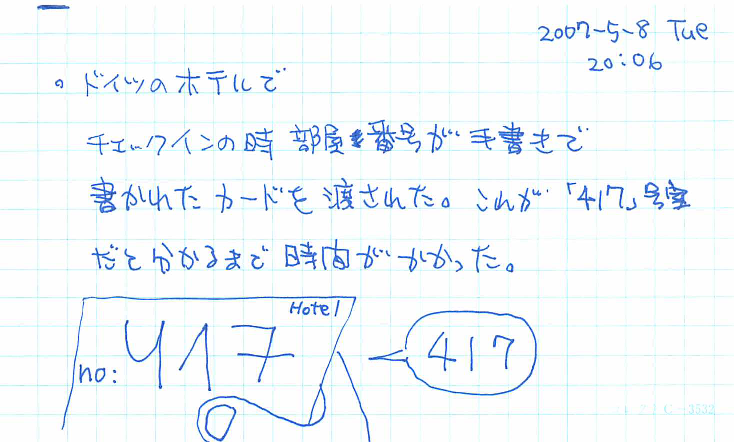 2007-5-8 Tue
20:06
。ドイツのホテルで
チェックインの時 部屋番号が手書きで
書かれたカードを渡された。これが「417」号室
だと分かるまで時間がかかった。
Hotel
no: 417
417